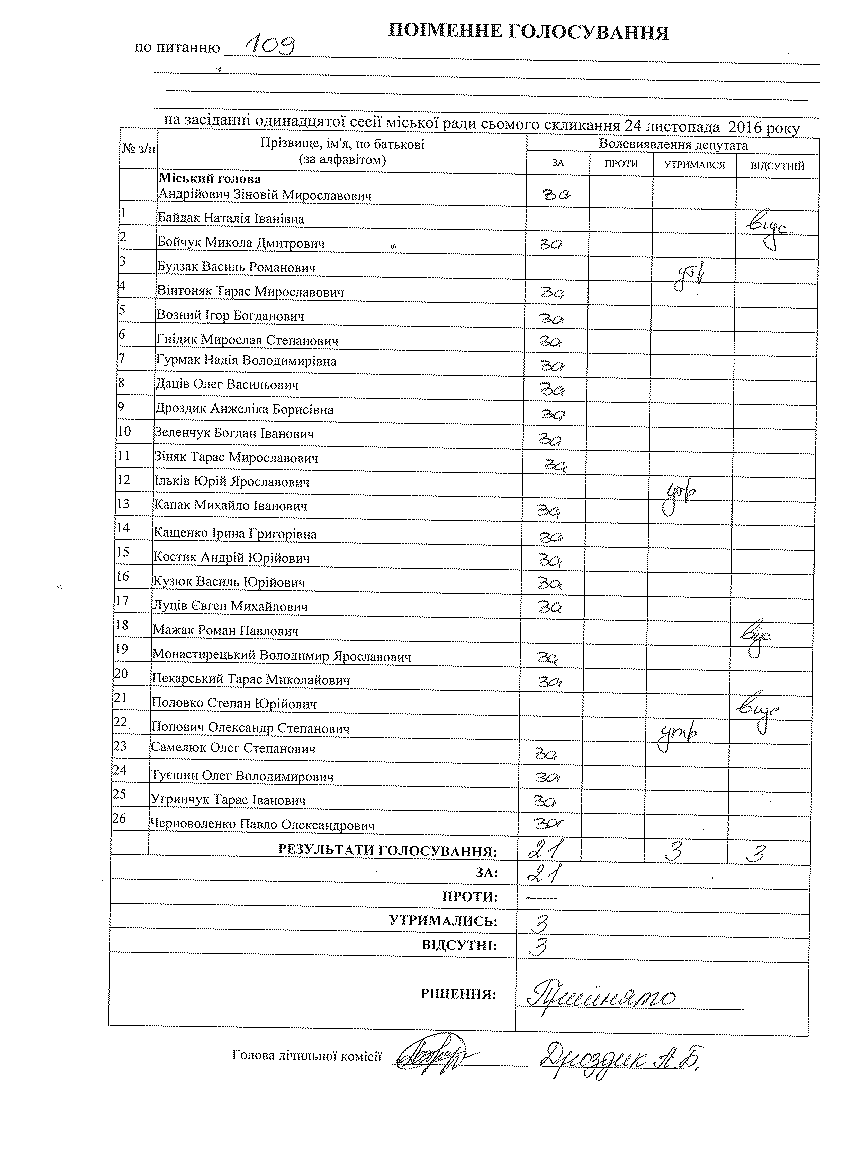 ПОІМЕННЕ ГОЛОСУВАННЯ
по питанню 109
на засіданні одинадцятої сесії міської ради сьомого скликання 24 листопада 2016 року
№ з/п Прізвище, ім'я, по батькові (за алфавітом) Волевиявлення депутата
ЗА ПРОТИ УТРИМАВСЯ ВІДСУТНІЙ
Міський голова
Андрійович Зіновій Мирославович за
1 Байдак Наталія Іванівна відс
2 Бойчук Микола Дмитрович за
3 Будзак Василь Романович утр
4 Вінтоняк Тарас Мирославович за
5 Возний Ігор Богданович за
6 Гнідик Мирослав Степанович за
7 Гурмак Надія Володимирівна за
8 Даців Олег Васильович за
9 Дроздик Анжеліка Борисівна за
10 Зеленчук Богдан Іванович за
11 Зіняк Тарас Мирославович за
12 Ільків Юрій Ярославович утр
13 Капак Михайло Іванович за
14 Кащенко Ірина Григорівна за
15 Костик Андрій Юрійович за
16 Кузюк Василь Юрійович за
17 Луців Євген Михайлович за
18 Мажак Роман Павлович відс
19 Монастирецький Володимир Ярославович за
20 Пекарський Тарас Миколайович за
21 Половко Степан Юрійович відс
22 Попович Олександр Степанович утр
23 Самелюк Олег Степанович за
24 Туєшин Олег Володимирович за
25 Угринчук Тарас Іванович за
26 Черноволенко Павло Олександрович за
РЕЗУЛЬТАТИ ГОЛОСУВАННЯ: 21 3 3
ЗА: 21
ПРОТИ: -----
УТРИМАЛИСЬ: 3
ВІДСУТНІ: 3
РІШЕННЯ: Прийнято
Голова лічильної комісії Дроздик А.Б.